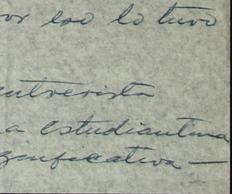 or eso lo tuvo
entrevista
a estudiantina
gnificativa —